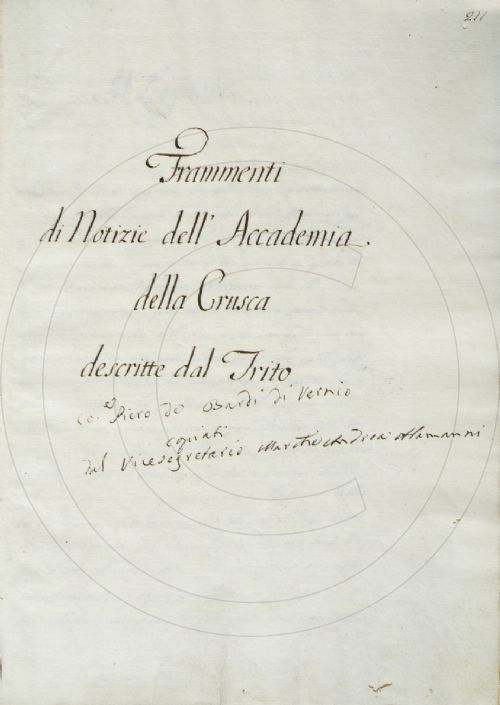 211
Frammenti
di Notizie dell' Accademia
della Crusca
descritte dal Trito
co: Piero de Bardi di Vernio
copiati
dal Vicesegretario March: Andrea Alamanni